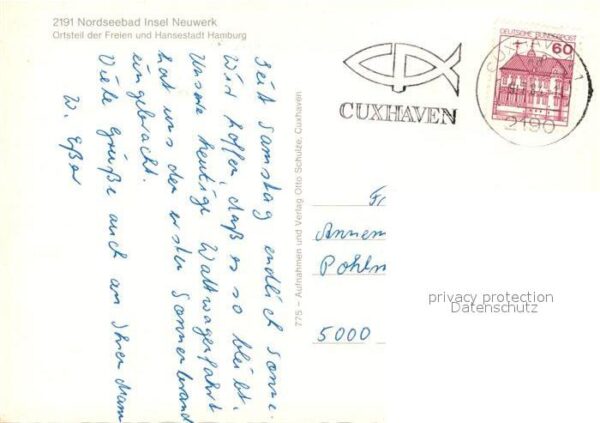 2191 Nordseebad Insel Neuwerk
Ortsteil der Freien und Hansestadt Hamburg
Seit Samstag endlich Sonne.
Wir hoffen, daß es so bleibt.
Unsere heutige Wattwagenfahrt
hat uns den ersten Sonnenbrand
eingebracht.
Viele Grüße auch an Ihren Mann
W. Eßer
775 – Aufnahmen und Verlag Otto Schulze, Cuxhaven
CUXHAVEN
DEUTSCHE BUNDESPOST
60
CUXHAVEN 1
2190
Fr
Annem
Pohlm
5000
privacy protection
Datenschutz